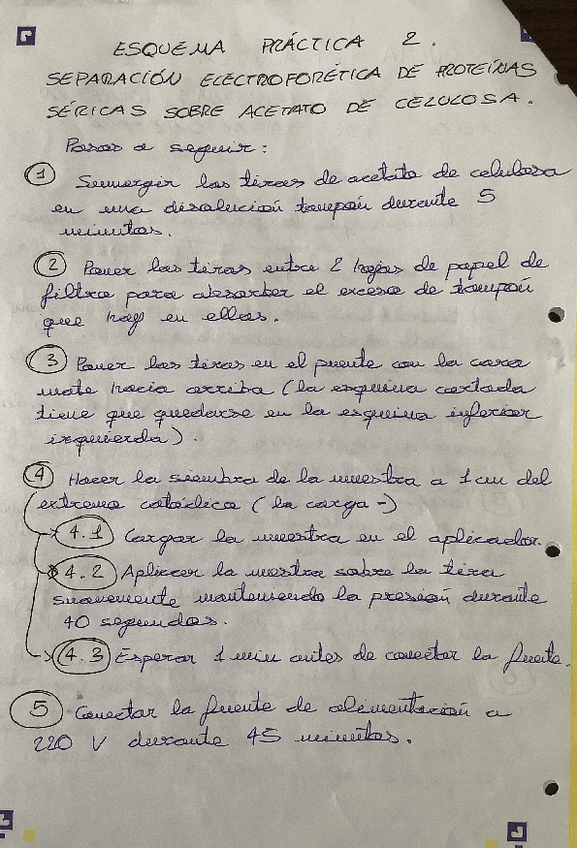 ESQUEMA PRÁCTICA 2.
SEPARACIÓN ELECTROFORÉTICA DE PROTEÍNAS
SÉRICAS SOBRE ACETATO DE CELULOSA.
Pasos a seguir:
1 Sumergir las tiras de acetato de celulosa
en una disolución tampón durante 5
minutos.
2 Poner las tiras entre 2 hojas de papel de
filtro para absorber el exceso de tampón
que hay en ellas.
3 Poner las tiras en el puente con la cara
mate hacia arriba (la esquina cortada
tiene que quedarse en la esquina inferior
izquierda).
4 Hacer la siembra de la muestra a 1 cm del
extremo catódico (la carga -)
4.1 Cargar la muestra en el aplicador.
4.2 Aplicar la muestra sobre la tira
suavemente manteniendo la presión durante
40 segundos.
4.3 Esperar 1 min antes de conectar la fuente.
5 Conectar la fuente de alimentación a
220 V durante 45 minutos.